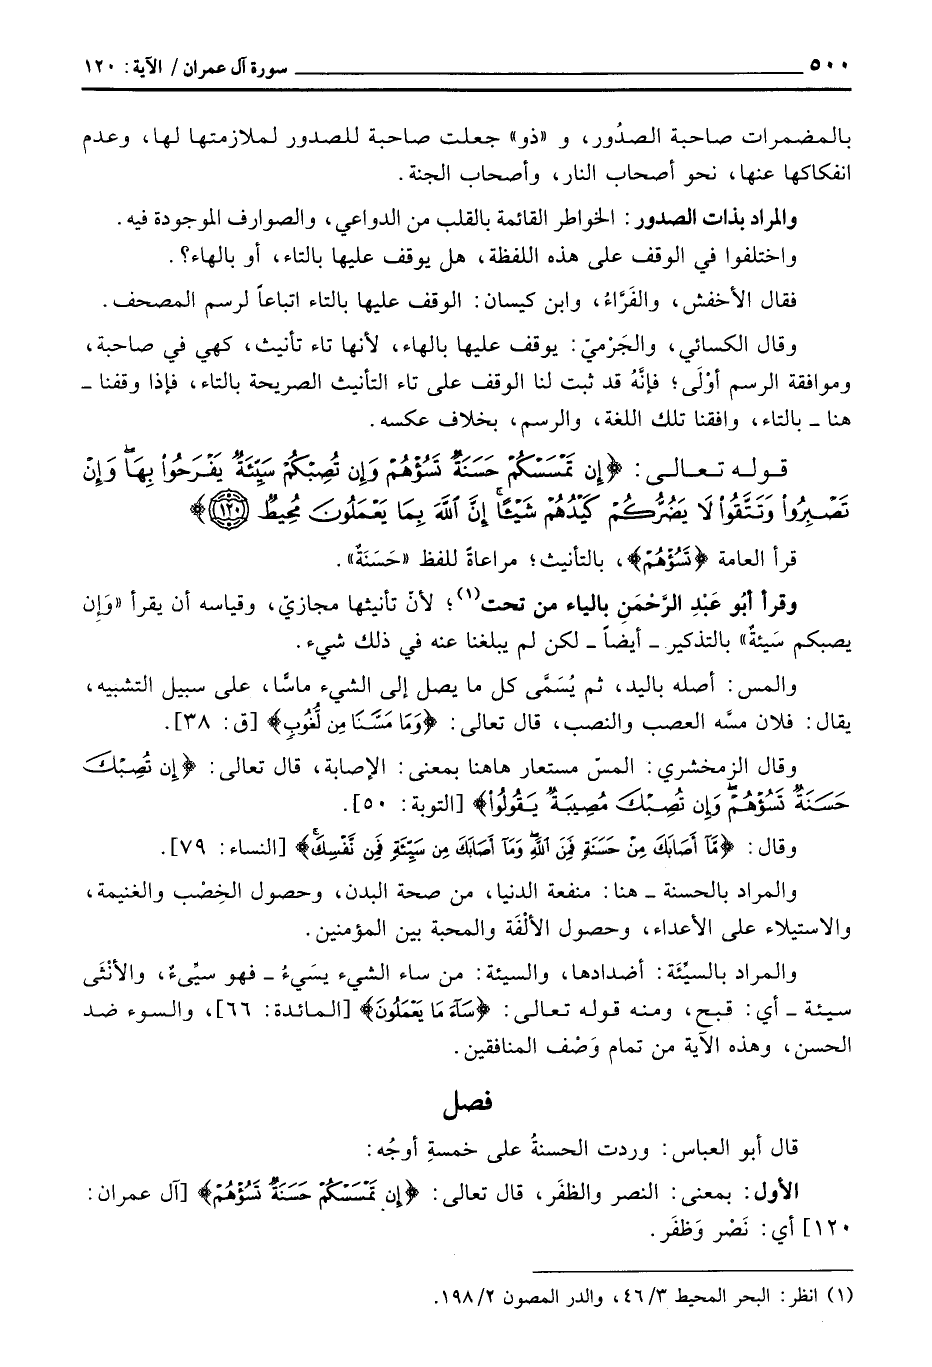 ٥٠٠ ـــــ سورة آل عمران / الآية: ١٢٠
بالمضمرات صاحبة الصدُور، و «ذو» جعلت صاحبة للصدور لملازمتها لها، وعدم
انفكاكها عنها، نحو أصحاب النار، وأصحاب الجنة.
والمراد بذات الصدور: الخواطر القائمة بالقلب من الدواعي، والصوارف الموجودة فيه.
واختلفوا في الوقف على هذه اللفظة، هل يوقف عليها بالتاء، أو بالهاء؟.
فقال الأخفش، والفَرَّاءُ، وابن كيسان: الوقف عليها بالتاء اتباعاً لرسم المصحف.
وقال الكسائي، والجَرْميّ: يوقف عليها بالهاء، لأنها تاء تأنيث، كهي في صاحبة،
وموافقة الرسم أوْلَى؛ فإنَّهُ قد ثبت لنا الوقف على تاء التأنيث الصريحة بالتاء، فإذا وقفنا ـ
هنا ـ بالتاء، وافقنا تلك اللغة، والرسم، بخلاف عكسه.
قوله تعالى: ﴿إِن تَمْسَسْكُمْ حَسَنَةٌ تَسُؤْهُمْ وَإِن تُصِبْكُمْ سَيِّئَةٌ يَفْرَحُوا۟ بِهَاۖ وَإِن
تَصْبِرُوا۟ وَتَتَّقُوا۟ لَا يَضُرُّكُمْ كَيْدُهُمْ شَيْـًٔاۗ إِنَّ ٱللَّهَ بِمَا يَعْمَلُونَ مُحِيطٌ ١٢٠﴾
قرأ العامة ﴿تَسُؤْهُمْ﴾، بالتأنيث؛ مراعاةً للفظ «حَسَنَةٌ».
وقرأ أبُو عَبْدِ الرَّحْمَنِ بالياء من تحت(١)؛ لأنّ تأنيثها مجازيّ، وقياسه أن يقرأ «وَإِن
يصبكم سَيئةٌ» بالتذكير ـ أيضاً ـ لكن لم يبلغنا عنه في ذلك شيء.
والمس: أصله باليد، ثم يُسَمَّى كل ما يصل إلى الشيء ماسًّا، على سبيل التشبيه،
يقال: فلان مسَّه العصب والنصب، قال تعالى: ﴿وَمَا مَسَّنَا مِن لُّغُوبٍ﴾ [ق: ٣٨].
وقال الزمخشري: المسّ مستعار هاهنا بمعنى: الإصابة، قال تعالى: ﴿إِن تُصِبْكَ
حَسَنَةٌ تَسُؤْهُمْۖ وَإِن تُصِبْكَ مُصِيبَةٌ يَقُولُوا۟﴾ [التوبة: ٥٠].
وقال: ﴿مَّآ أَصَابَكَ مِنْ حَسَنَةٍ فَمِنَ ٱللَّهِۖ وَمَآ أَصَابَكَ مِن سَيِّئَةٍ فَمِن نَّفْسِكَۚ﴾ [النساء: ٧٩].
والمراد بالحسنة ـ هنا: منفعة الدنيا، من صحة البدن، وحصول الخِصْب والغنيمة،
والاستيلاء على الأعداء، وحصول الألْفَة والمحبة بين المؤمنين.
والمراد بالسيِّئَة: أضدادها، والسيئة: من ساء الشيء يسَيءُ ـ فهو سيِّىءٌ، والأنْثَى
سيئة ـ أي: قبح، ومنه قوله تعالى: ﴿سَآءَ مَا يَعْمَلُونَ﴾ [المائدة: ٦٦]، والسوء ضد
الحسن، وهذه الآية من تمام وَصْف المنافقين.
فصل
قال أبو العباس: وردت الحسنةُ على خمسةِ أوجُه:
الأول: بمعنى: النصر والظفَر، قال تعالى: ﴿إِن تَمْسَسْكُمْ حَسَنَةٌ تَسُؤْهُمْ﴾ [آل عمران:
١٢٠] أي: نَصْر وَظفَر.
(١) انظر: البحر المحيط ٤٦/٣، والدر المصون ١٩٨/٢.